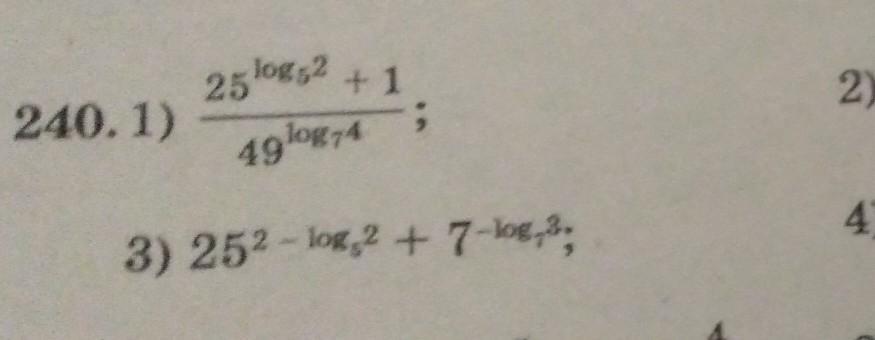 240. 1) \frac{25^{\log_5 2} + 1}{49^{\log_7 4}}; 2)
3) 25^{2 - \log_5 2} + 7^{-\log_7 3}; 4)